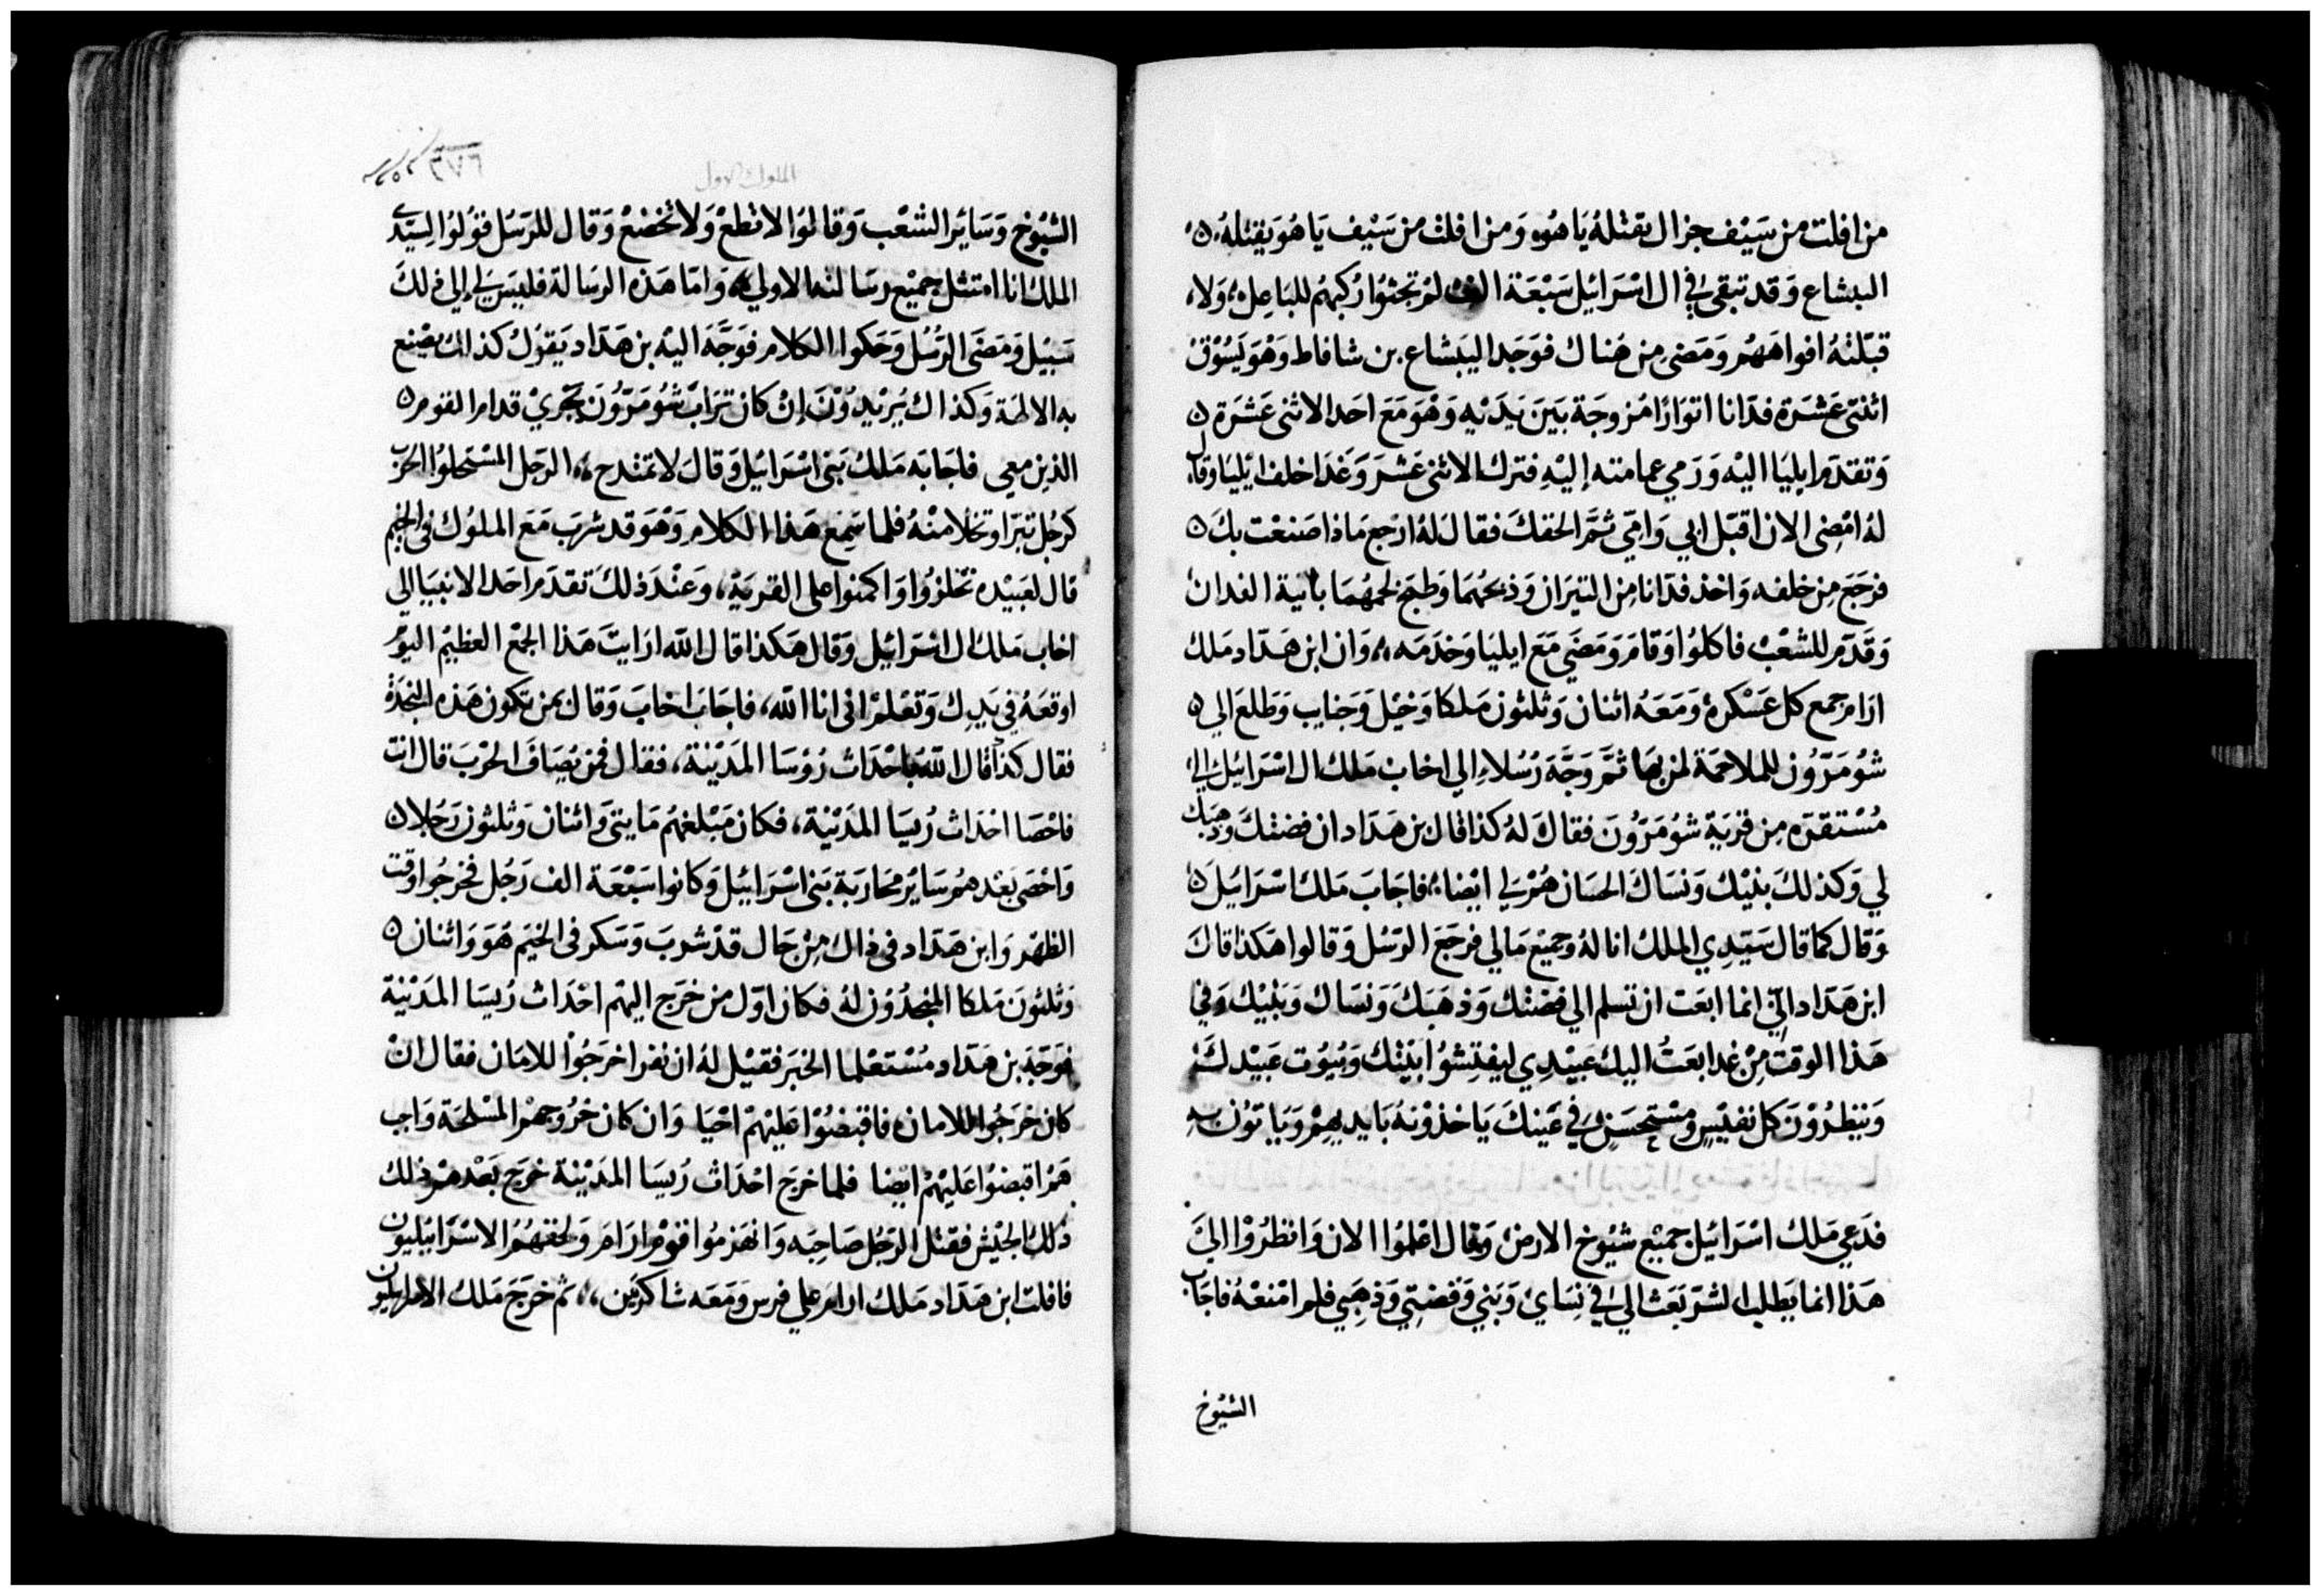 من افلت من سَيْف جزال يقتلهُ يَاهُو، وَمن افلت من سَيْف يَاهُوَ يَقتلهُ ه
اليشاع وَقد تبقي في ال اسْرَائيل سَبْعَة الف لم تجثوا ركبهُم للبَاعِل، وَلا
قبّلتهُ افواههُم وَمَضي من هُناك فوَجَد اليَشاع بن شافاط وَهْوَ يَسُوْق
اثنتى عَشرَة فدّانا اتوَارًا مُزوجَة بَين يَدَيْه وَهْوَ مَعَ احَد الاثنى عَشرَة ه
وَتقدّم ايليَا اليْه وَرَمي عمامته إليْهِ فترك الاثنى عَشرَ وَغدَا خلف ايليَا وقال
لهُ امْضِى الان اقبّل ابي وَامّي ثمَّ الحقكَ فقال لهُ ارْجع مَاذا صَنعْت بكَ ه
فرجَع مِن خلفه وَاخذ فدّانا مِن التيرَان وَذبحهُمَا وَطبخ لحمهُمَا بآنية الفدان
وَقدّم للشعْب فاكلوُا وَقامَ وَمَضَي مَعَ ايليَا وَخدَمَه،، وَان ابن هَدّاد مَلك
ارَام جمع كل عَسْكرهُ وَمَعَهُ اثنان وَثلثون مَلكا وَخيْل وَجنايب وَطلعَ الي ه
شوُمَرّوُن للملاحمَة لمن بهَا ثمَّ وَجَّهَ رُسُلاءِ الي اخابْ مَلك ال اسْرَائيل الي
مُسْتقرّه مِن قرْيَة شوُمَرّوُنَ فقالَ لهُ كذا قال بن هَدَاد ان فضتكَ وَذهبَك
لي وَكذلكَ بنيْك وَنسَاكَ الحسَان هُمْ لي ايْضا، فاجَابَ مَلك اسْرَائيل ه
وَقال كما قال سَيّدِي الملك انا لهُ وَجميْع مَالي فرجَعَ الرّسُل وَقالوا هَكذا قالَ
ابن هَدَاد الّي انما ابعَت ان تسلم الي فضتك وَذهَبَكَ وَنسَاك وَبَنيْك وَفي
هَذا الوقت مِنْ غدا ابعَتُ اليك عَبيْدِي ليفتِشوُا بَيْتك وَبُيُوت عَبيْدكَ
وَينظرُوْنَ كل نفيْس وَمسْتحسَنٍ في عَيْنكَ يَاخذوْنهُ بَايديهِمْ وَيَاتوُن بهِ
فدَعي مَلك اسْرَائيل جميْع شيُوخ الارض وَقال اعْلموُا الان وَانظرُوْا اليَ
هَذا انما يَطلب الشر بَعَث اليّ في نِسَاي وَبَنيّ وَفضتِي وَذهَبي فلم امْنعْهُ فاجَاب
الشيُوخ
الملوك الاول
٦٧٦
الشيُوخ وَسَائر الشعْب وَقالوُا لا تطعْ وَلا تخضعْ وَقال للرّسُل قوُلوُا لِسَيّدي
الملك انا امتثل جميْع رسَالته الاولي، وَامّا هَذه الرسَالة فليسَ لي إلي ذلكَ
سَبيْل وَمَضَي الرّسُل وَحَكوا الكلام فوَجَّهَ اليْه بن هَدَاد يَقوُل كذاك يصْنع
به الالهَة وَكذاك يُريْدوُنَ إنْ كان ترَابْ شوُمَرّوُنَ يجْريْ قدام القوم ه
الذين معِى فاجَابَه مَلك بَنى اسْرَائيل وَقال لا تمتدح،، الرَجل المسْتحلوا الحرْب
كرَجُل تبرّا وتخلا منهُ فلما سَمِع هَذا الكلام وَهْوَ قد شربَ مَعَ الملوُك في الخيم
قال لعَبيْده تحْلزوُا وَاكمنوا على القريَة، وَعنْدَ ذلكَ تقدّم احَد الانبيَا الي
اخاب مَلك ال اسْرَائيل وَقال هَكذا قال اللّه ارَايت هَذا الجمْع العظيْم اليوْم
اوقعَهُ في يَدِك وَتعْلم انى انا اللّه، فاجَابَ اخابَ وَقال بمن تكون هَذه النجدَة
فقال كذا قال اللّه باحْدَاث رُؤسَا المَديْنة، فقال فمن يُصَافّ الحَرْبَ قال انت
فاحْصَا احْدَاث رُيسَا المَدَيْنة، فكان مَبْلغهُم مَايتىَ وَاثنان وَثلثون رَجُلا ه
وَاحْصَى بَعْدهمُ سَاير محَاربَة بَنى اسْرَائيل وَكانوا سَبْعَة الف رَجُل فخرجُوا وَقت
الظهْر وَابن هَدّاد في ذاك مِنْ حَال قدْ شربَ وَسَكر فى الخيَم هُوَ وَاثنان ه
وَثلثونَ مَلكا المنجدُوْن لهُ فكان اوّل من خرَج اليهم احْدَاث رُيسَا المَدَيْنة
فوَجّهَ بن هَدّاد مُسْتعْلما الخبَر فقيْل لهُ ان نفرا خرَجُوْا للامَان فقال انْ
كان خرَجُوا للامان فاقبضُوْا عَليْهِمْ احْيَا وَان كان خرُوجهمْ المسْلحَة وَاجب
هَم اقبضُوا عَليْهِمْ ايْضا فلما خرَج احْدَاث رُيسَا المَدَيْنة خرَج بَعْدهمْ ذلك
ذلك الجيْش فقتل الرّجُل صَاحِبَه وَانهَزمُوا قوْم ارَام وَلحقهُمُ الاسْرَايليون
فافلت ابن هَدَاد مَلك ارام علي فرس وَمَعَه شاكريّن،، ثم خرَجَ مَلك